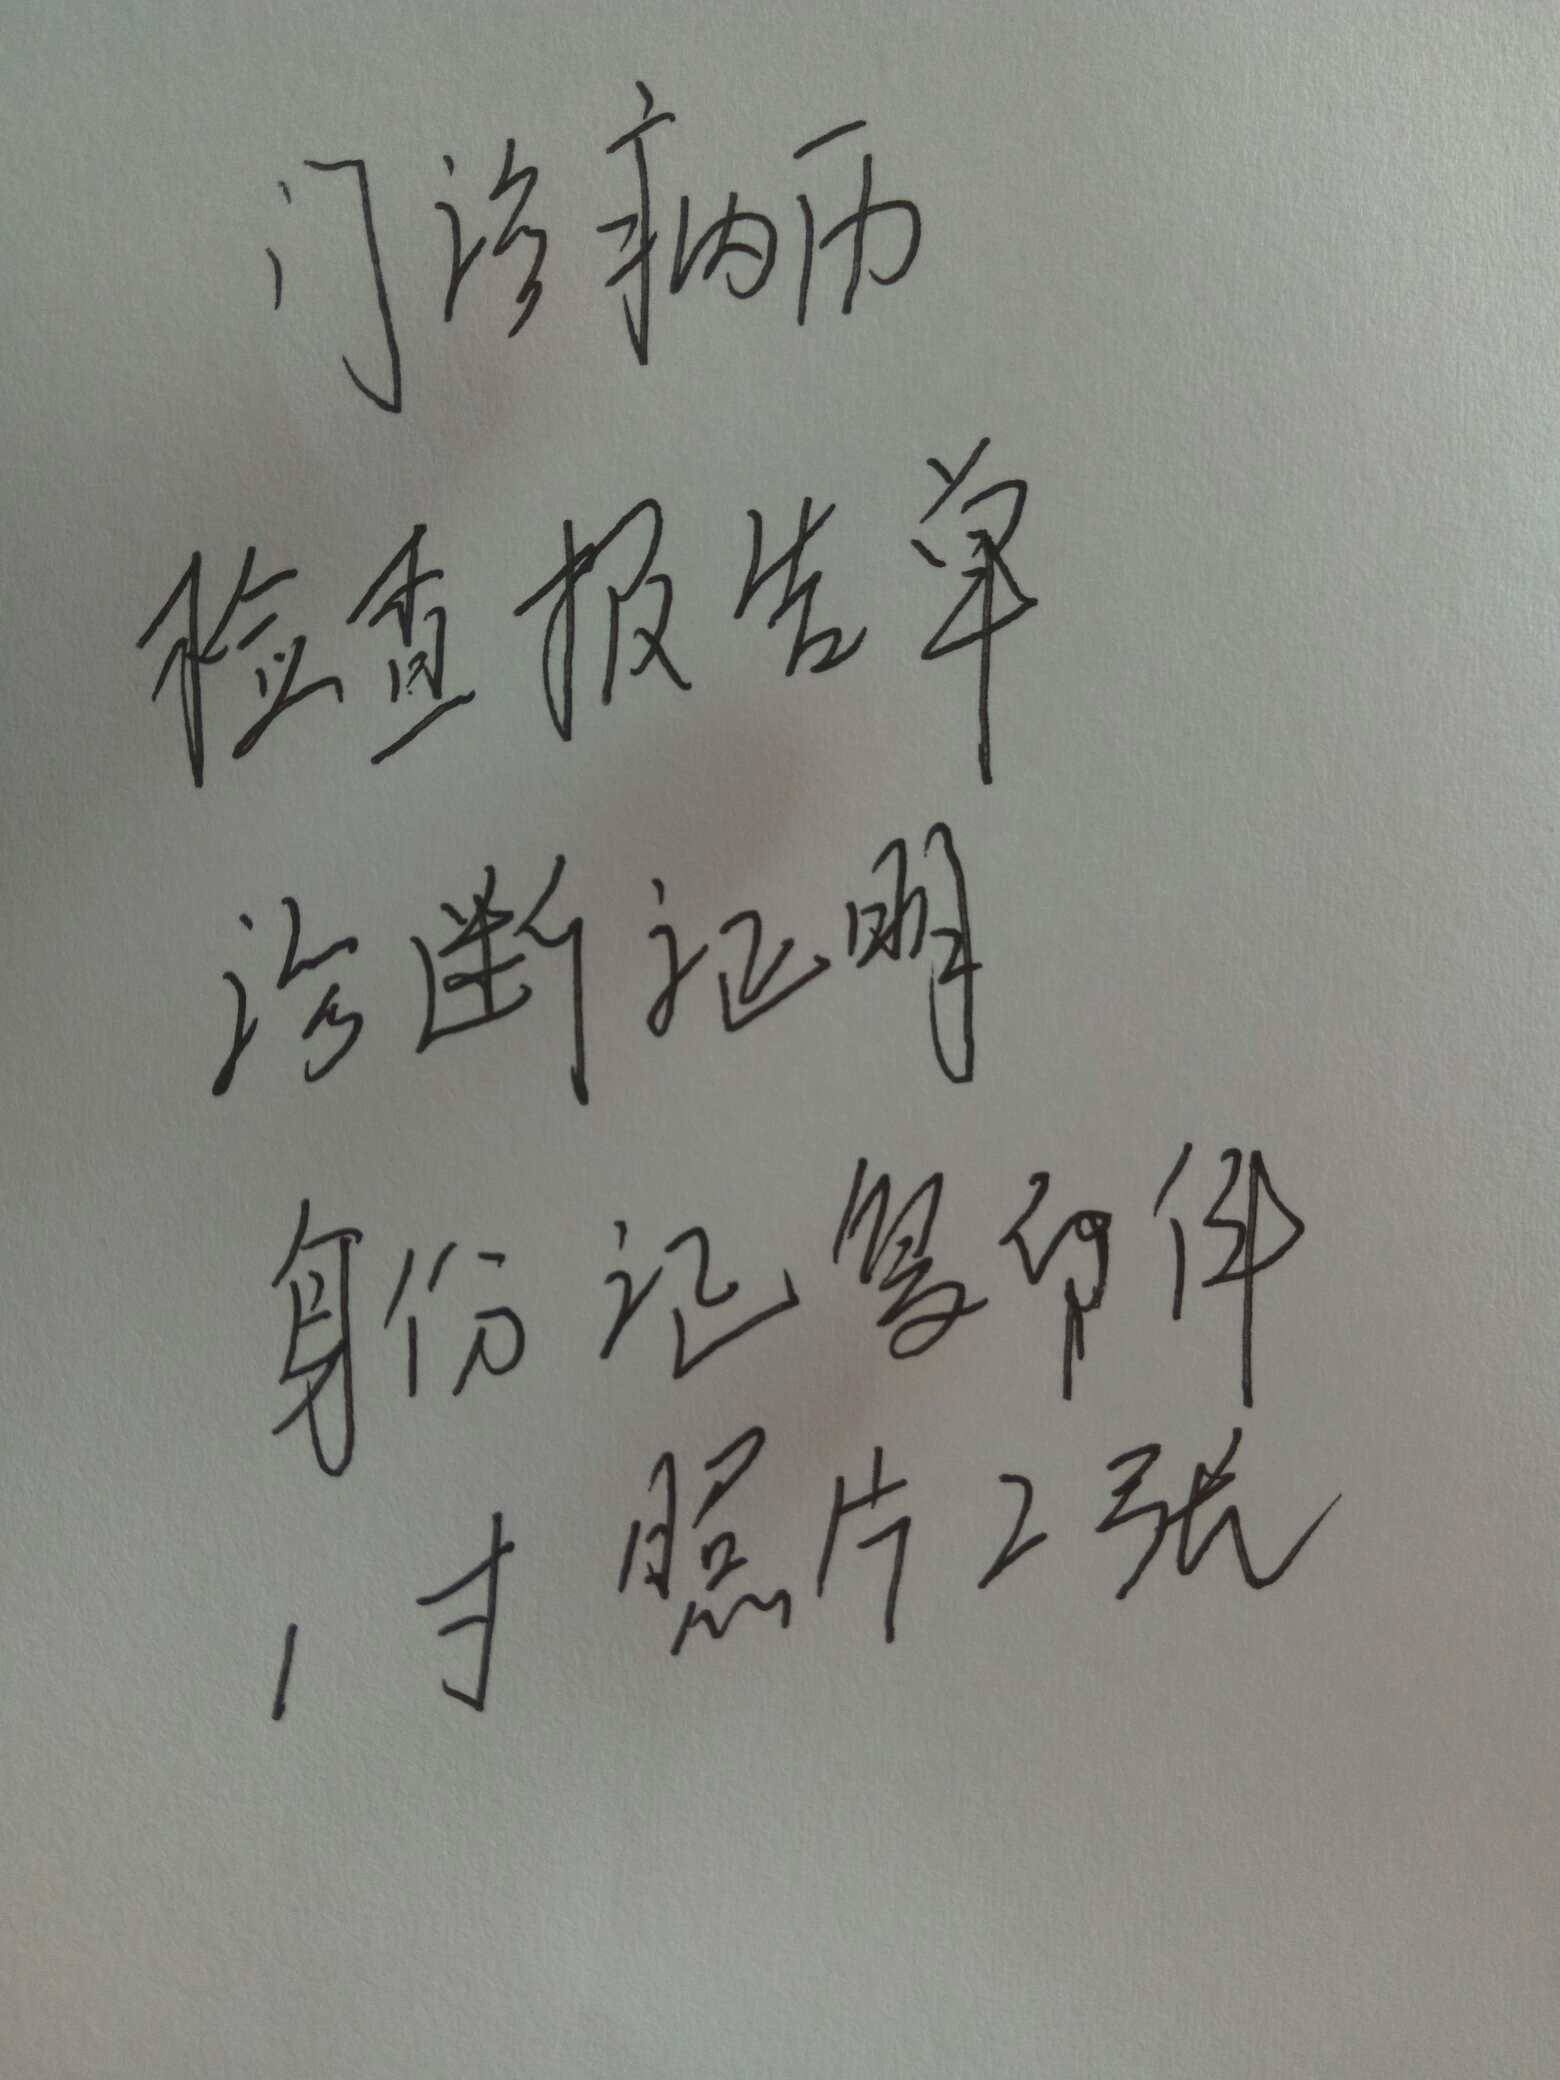 门诊病历
检查报告单
诊断证明
身份证复印件
1寸照片2张